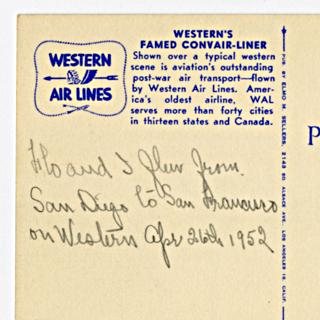 WESTERN
AIR LINES
WESTERN'S
FAMED CONVAIR-LINER
Shown over a typical western
scene is aviation's outstanding
post-war air transport—flown
by Western Air Lines. Amer-
ica's oldest airline, WAL
serves more than forty cities
in thirteen states and Canada.
Flo and I flew from
San Diego to San Francisco
on Western Apr 26th 1952
PUB. BY ELMO M. SELLERS, 2143 SO. ALSACE AVE. LOS ANGELES 16, CALIF.
P